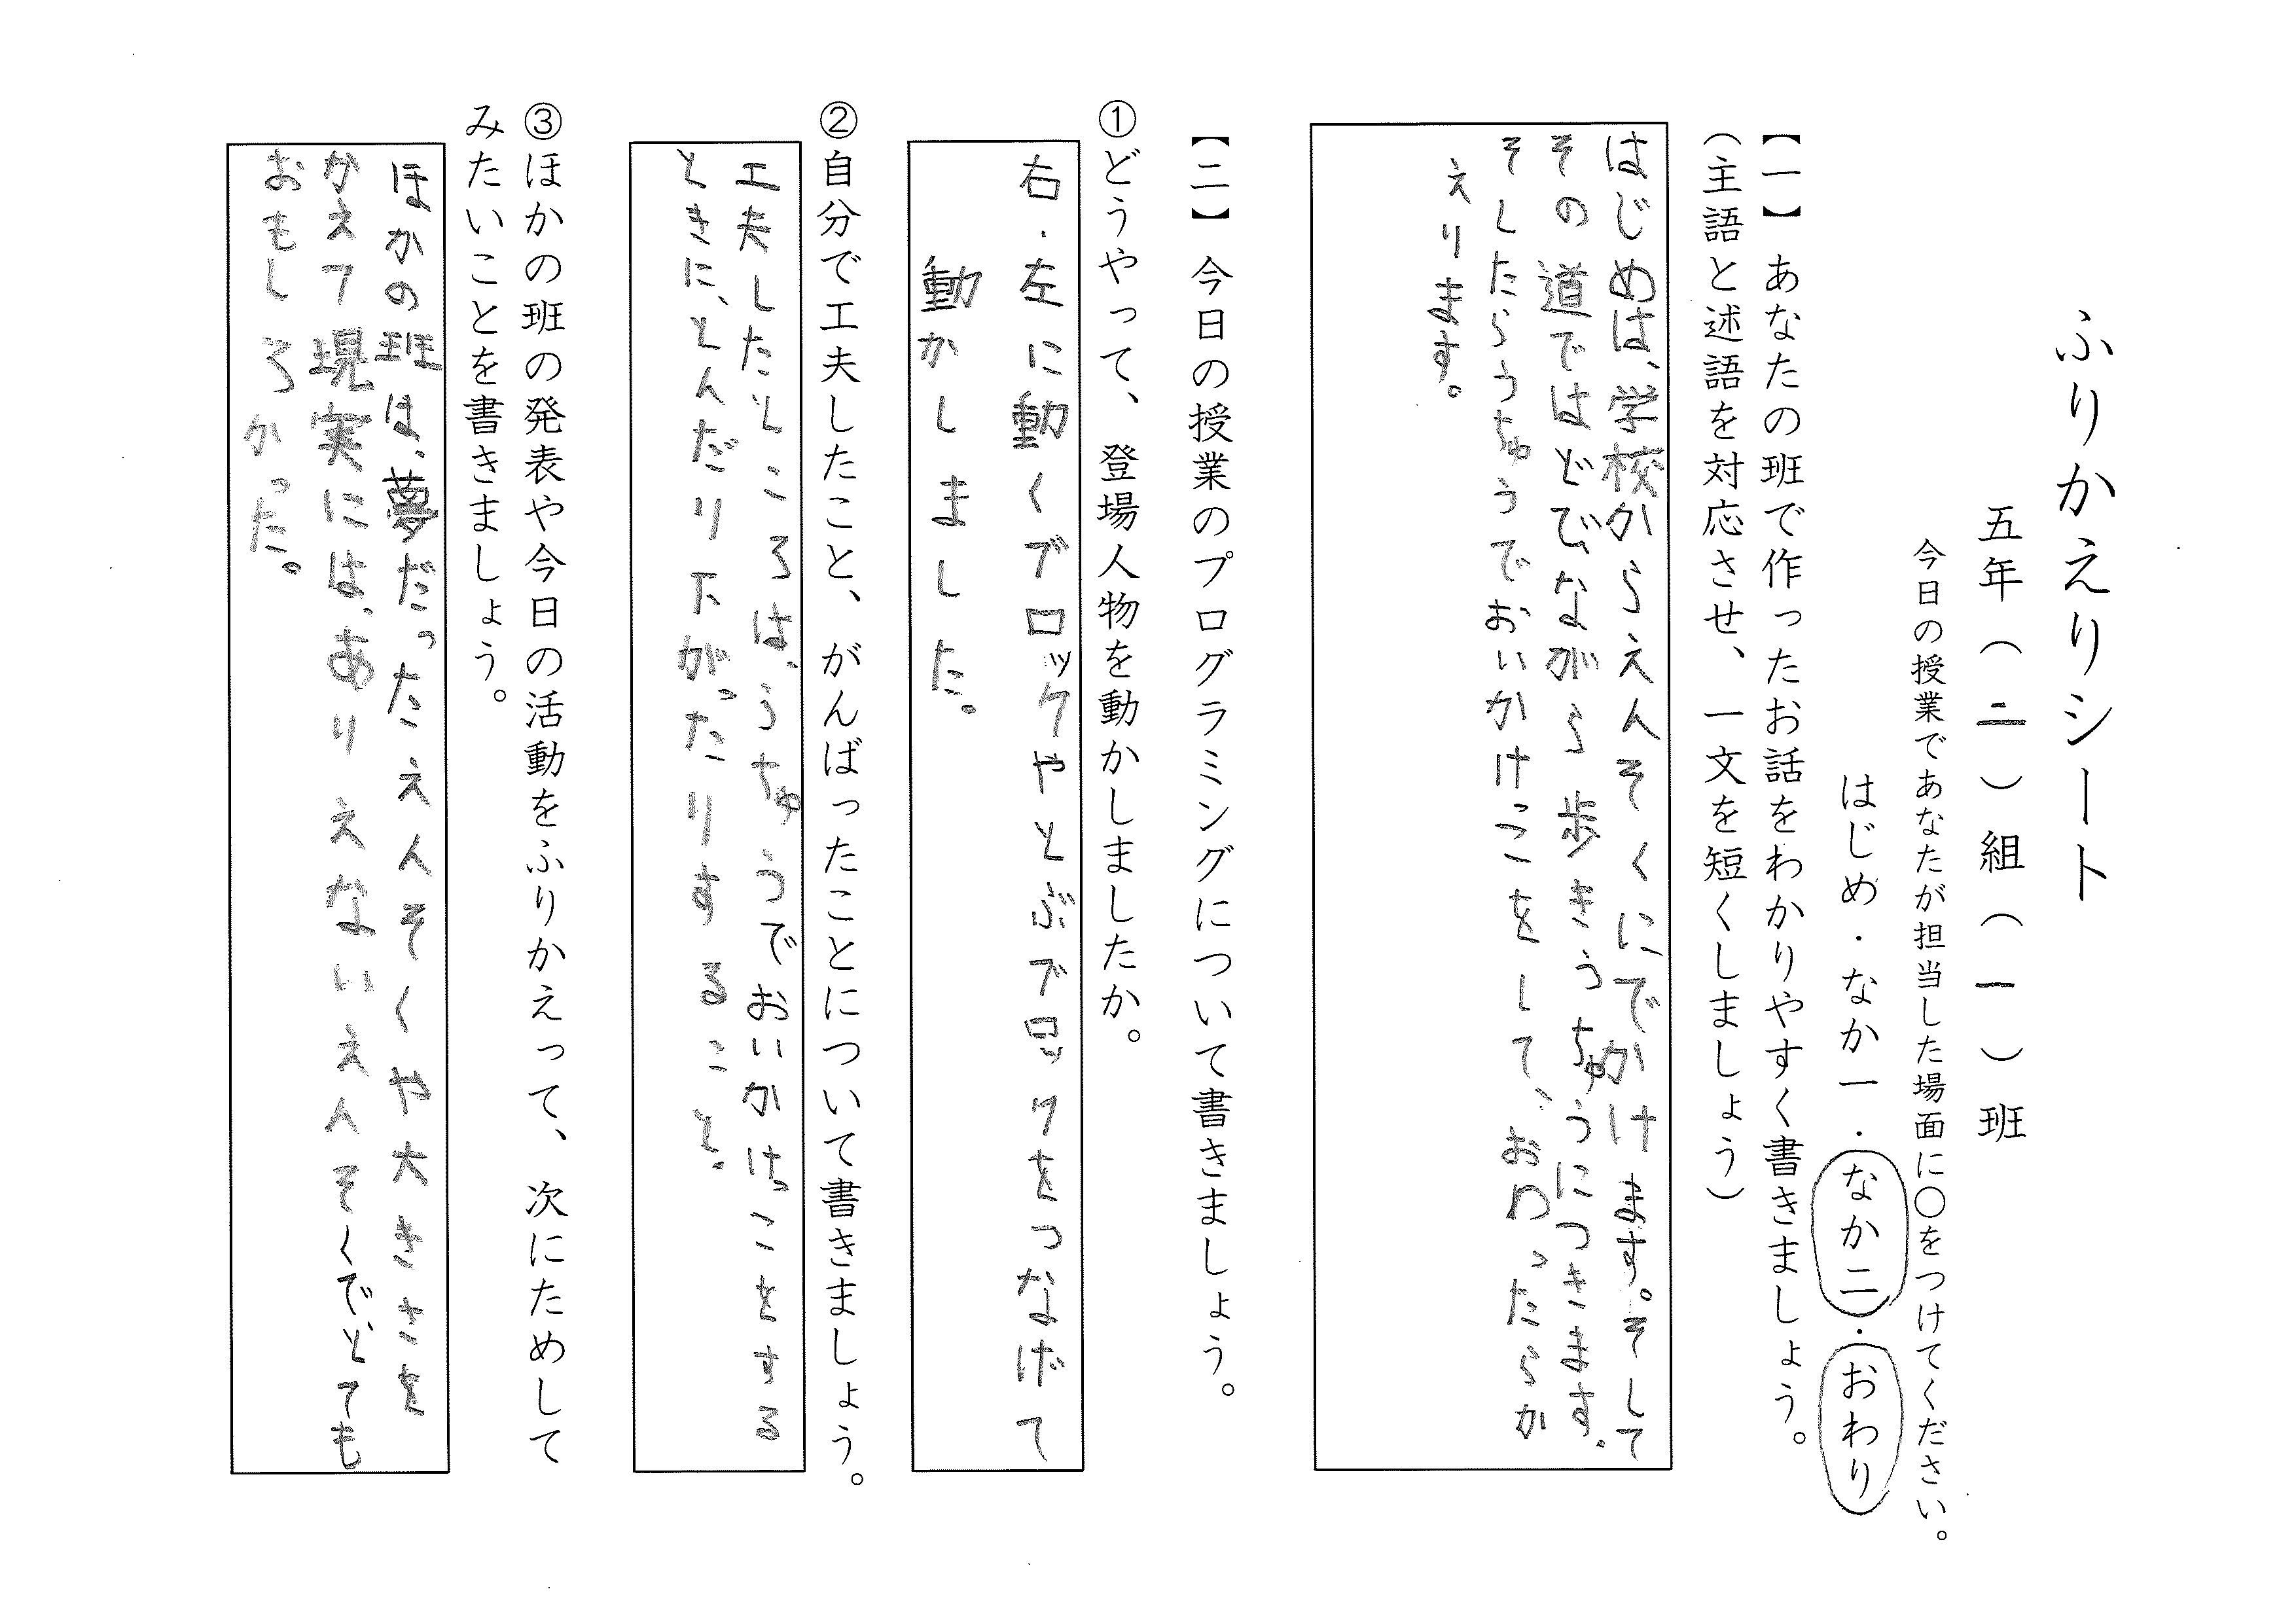 ふりかえりシート
五年（二）組（一）班
今日の授業であなたが担当した場面に〇をつけてください。
はじめ・なか一・なか二・おわり
【一】あなたの班で作ったお話をわかりやすく書きましょう。
（主語と述語を対応させ、一文を短くしましょう）
はじめは、学校からえんそくにでかけます。そして
その道ではとびながら歩きうちゅうにつきます。
そしたらうちゅうでおいかけっこをして、おわったらか
えります。
【二】今日の授業のプログラミングについて書きましょう。
①どうやって、登場人物を動かしましたか。
右・左に動くブロックやとぶブロックをつなげて
動かしました。
②自分で工夫したこと、がんばったことについて書きましょう。
工夫したところは、うちゅうでおいかけっこをする
ときに、とんだり下がったりすること。
③ほかの班の発表や今日の活動をふりかえって、次にためして
みたいことを書きましょう。
ほかの班は、夢だったえんそくや大きさを
かえて現実には、ありえないえんそくで、とても
おもしろかった。